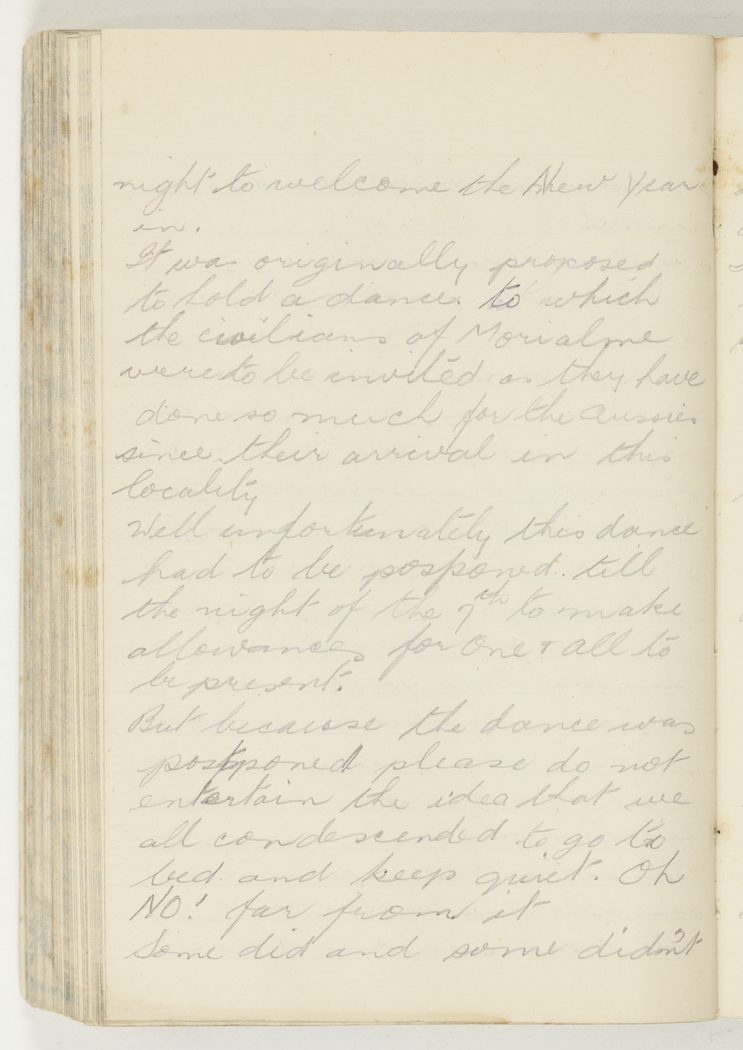 night to welcome the New Year
in.
It was originally proposed
to hold a dance to which
the civilians of Morialme
were to be invited as they have
done so much for the Aussies
since their arrival in this
locality
Well unfortunately this dance
had to be posponed till
the night of the 7th to make
allowances for one & all to
be present.
But because the dance was
postponed please do not
entertain the idea that we
all condescended to go to
bed and keep quiet. Oh
NO! far from it
Some did and some didn't